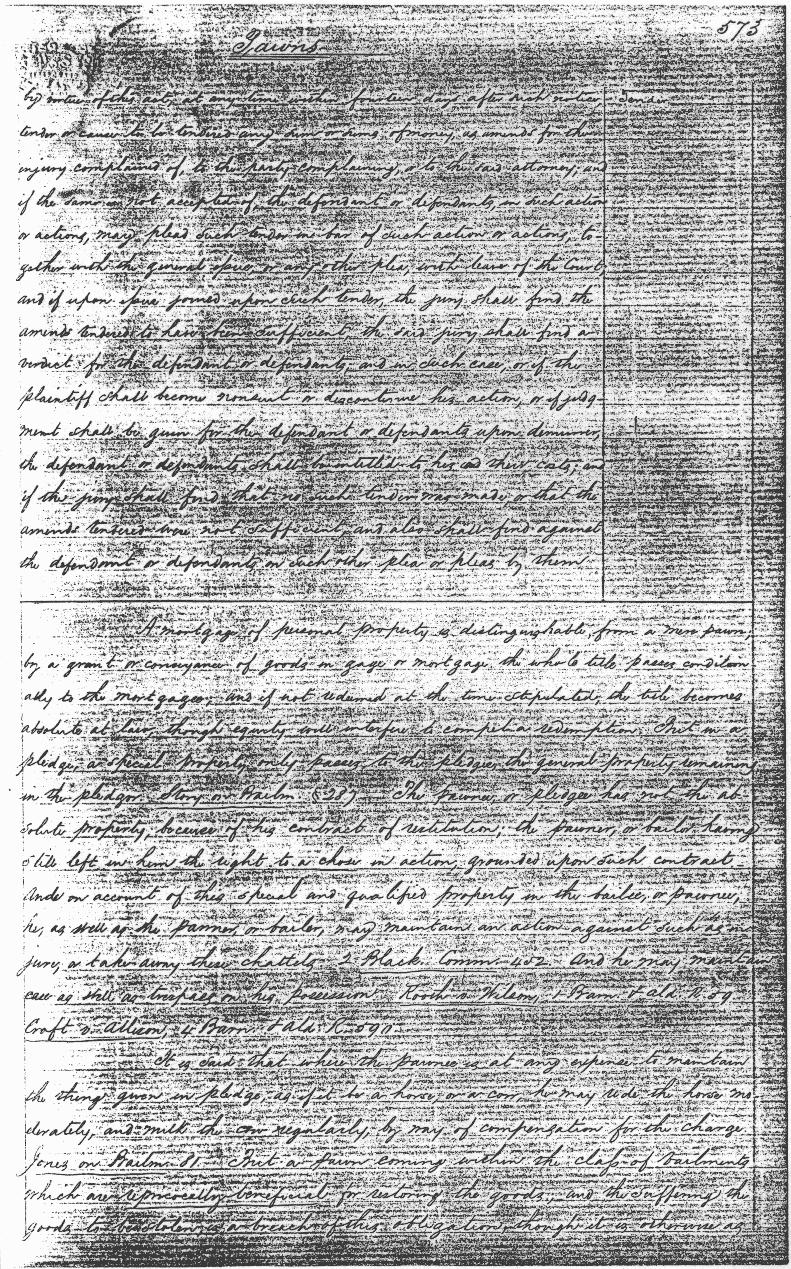 573
Pawns
by virtue of this act, at any time within fourteen days after such notice
Tender
tender or cause to be tendered any sum or sums of money, as amends for the
injury complained of, to the party complaining, or to the said attorney, and
if the same is not accepted of, the defendant or defendants, in such action
or actions, may plead such tender in bar of such action or actions, to
gether with the general issue, or any other plea, with leave of the Court,
and if upon issue joined upon such tender, the jury shall find the
amends tendered to have been sufficient the said jury shall find a
verdict for the defendant or defendants, and in such case, or if the
plaintiff shall become nonsuit or discontinue his action, or if judg-
ment shall be given for the defendant or defendants upon demurrer,
the defendant or defendants, shall be entitled to his or their costs, and
if the jury shall find that no such tender was made or that the
amends tendered were not sufficient, and also shall find against
the defendant or defendants on such other plea or pleas by them
A mortgage of personal property is distinguishable from a mere pawn;
by a grant or conveyance of goods in gage or mortgage, the whole title passes condition
ally to the mortgagee, and if not redeemed at the time stipulated, the title becomes
absolute at law, though equity will interfere to compel a redemption. But in a
pledge, a special property only passes to the pledgee, the general property remaining
in the pledgor. Story on Bailm. § 287. The pawnee, or pledgee has not the ab
solute property, because of his contract of restitution; the pawner, or bailor having
still left in him the right to a chose in action, grounded upon such contract
And on account of this special and qualified property in the bailee, or pawnee,
he, as well as the pawner, or bailor, may maintain an action against such as in
jure, or take away these chattels 2 Black. Comm. 452 And he may maintain
case as well as trespass on his possession Rooth v. Wilson, 1 Barn. & Ald. R. 59
Croft v. Allison, 4 Barn. & Ald. R. 590.
It is said that where the pawnee is at any expense to maintain
the thing given in pledge, as if it be a horse, or a cow, he may ride the horse mo
derately, and milk the cow regularly, by way of compensation for the charge
Jones on Bailm. 81. But a pawn coming within the class of bailments
which are reciprocally beneficial for restoring the goods, and the suffering the
goods to be stolen is a breach of this obligation, though it is otherwise as